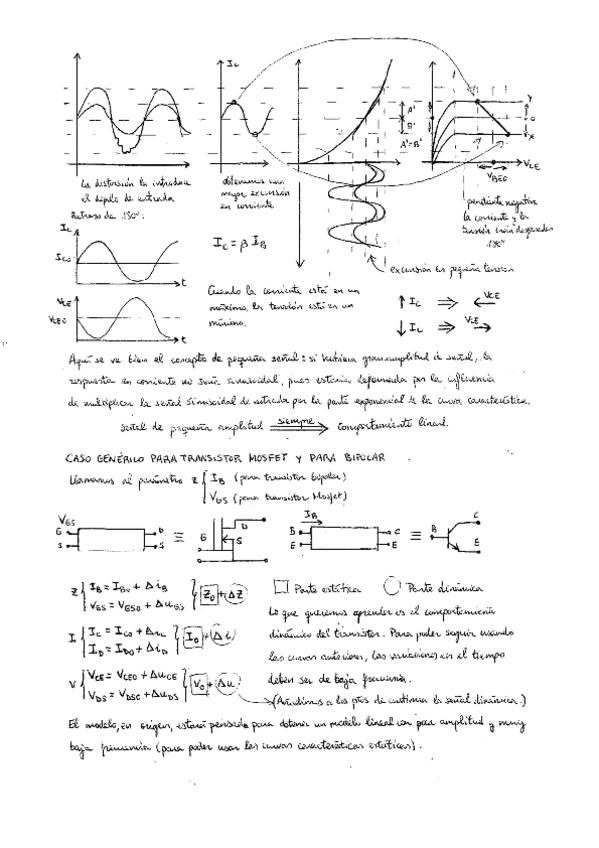 I_C
A'
B'
A'=B'
Y
Q
X
V_CE
V_BEQ
La distorsión la introduce
el diodo de entrada
obtenemos una
mayor excursión
en corriente
pendiente negativa
la corriente y la
tensión están desfasadas
180°
Retraso de 180°:
I_C
I_CQ
t
I_C = β I_B
excursión en pequeña tensión
V_CE
V_CEQ
t
Cuando la corriente está en un
máximo, la tensión está en un
mínimo.
↑ I_C ⇒ V_CE ←
↓ I_C ⇒ V_CE →
Aquí se ve bien el concepto de pequeña señal: si hubiera gran amplitud de señal, la
respuesta en corriente no sería sinusoidal, pues estaría deformada por la influencia
de multiplicar la señal sinusoidal de entrada por la parte exponencial de la curva característica.
Señal de pequeña amplitud siempre ⟹ comportamiento lineal.
CASO GENÉRICO PARA TRANSISTOR MOSFET Y PARA BIPOLAR
Llamamos al parámetro Z { I_B (para transistor bipolar)
V_GS (para transistor Mosfet)
V_GS
G D
S S
≡
G D S
I_B
B C
E E
≡
B C E
Z { I_B = I_B0 + Δi_B
V_GS = V_GS0 + Δu_GS } Z_0 + ΔZ
I { I_C = I_C0 + Δi_C
I_D = I_D0 + Δi_D } I_0 + Δi
V { V_CE = V_CE0 + Δu_CE
V_DS = V_DS0 + Δu_DS } V_0 + Δu
□ Parte estática ○ Parte dinámica
Lo que queremos aprender es el comportamiento
dinámico del transistor. Para poder seguir usando
las curvas anteriores, las variaciones en el tiempo
deben ser de baja frecuencia.
(Añadimos a los ptos de continua la señal dinámica.)
El modelo, en origen, estará pensado para obtener un modelo lineal con poca amplitud y muy
baja frecuencia (para poder usar las curvas características estáticas).